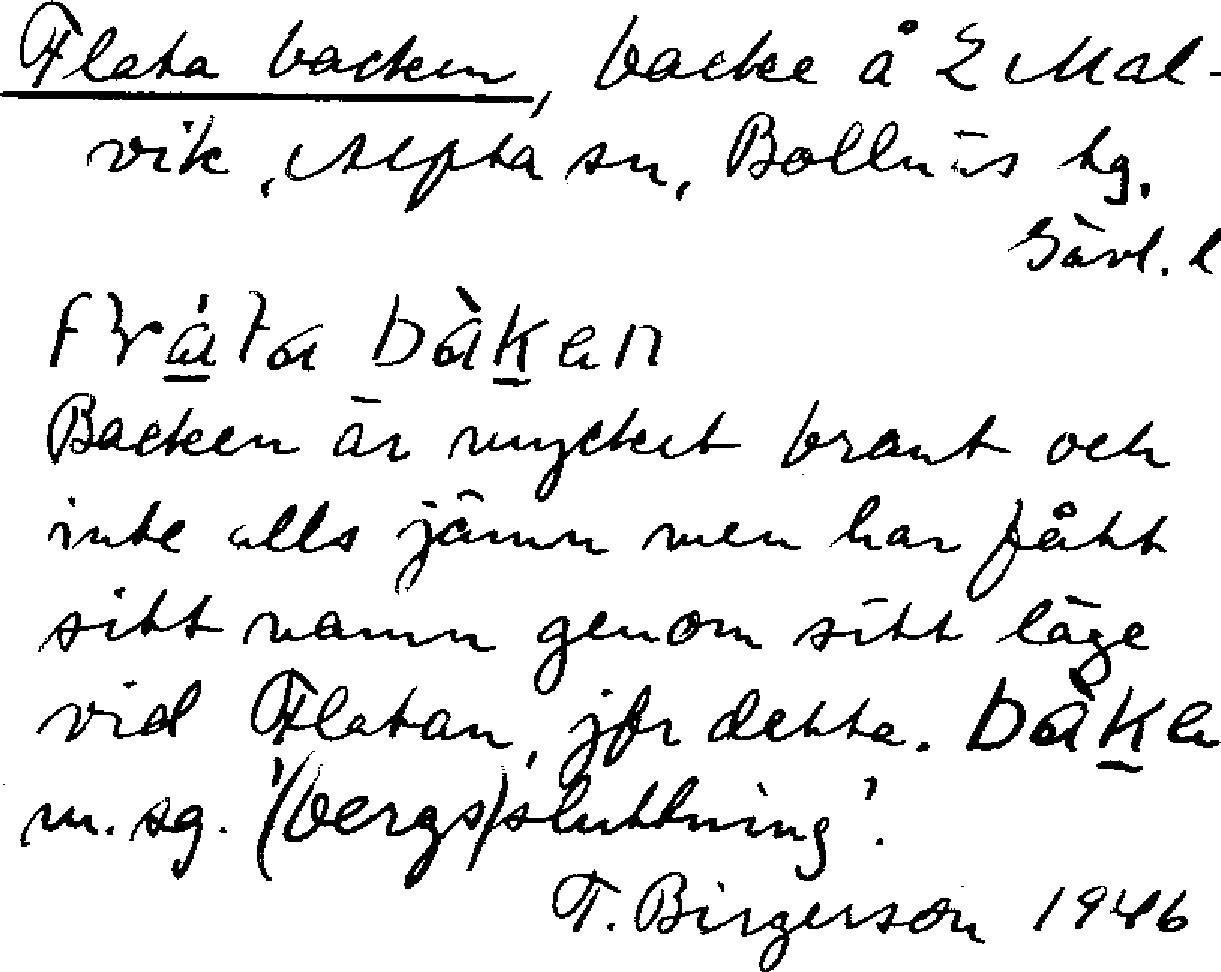 Flata backen, backe å 2 Mal-
vik, Alfta sn, Bollnäs tg,
Gävl. l
backen
Backen är mycket brant och
inte alls jämn men har fått
sitt namn genom sitt läge
vid Flatan, jfr detta.
m. sg. '(bergs)sluttning'.
T. Birgerson 1946